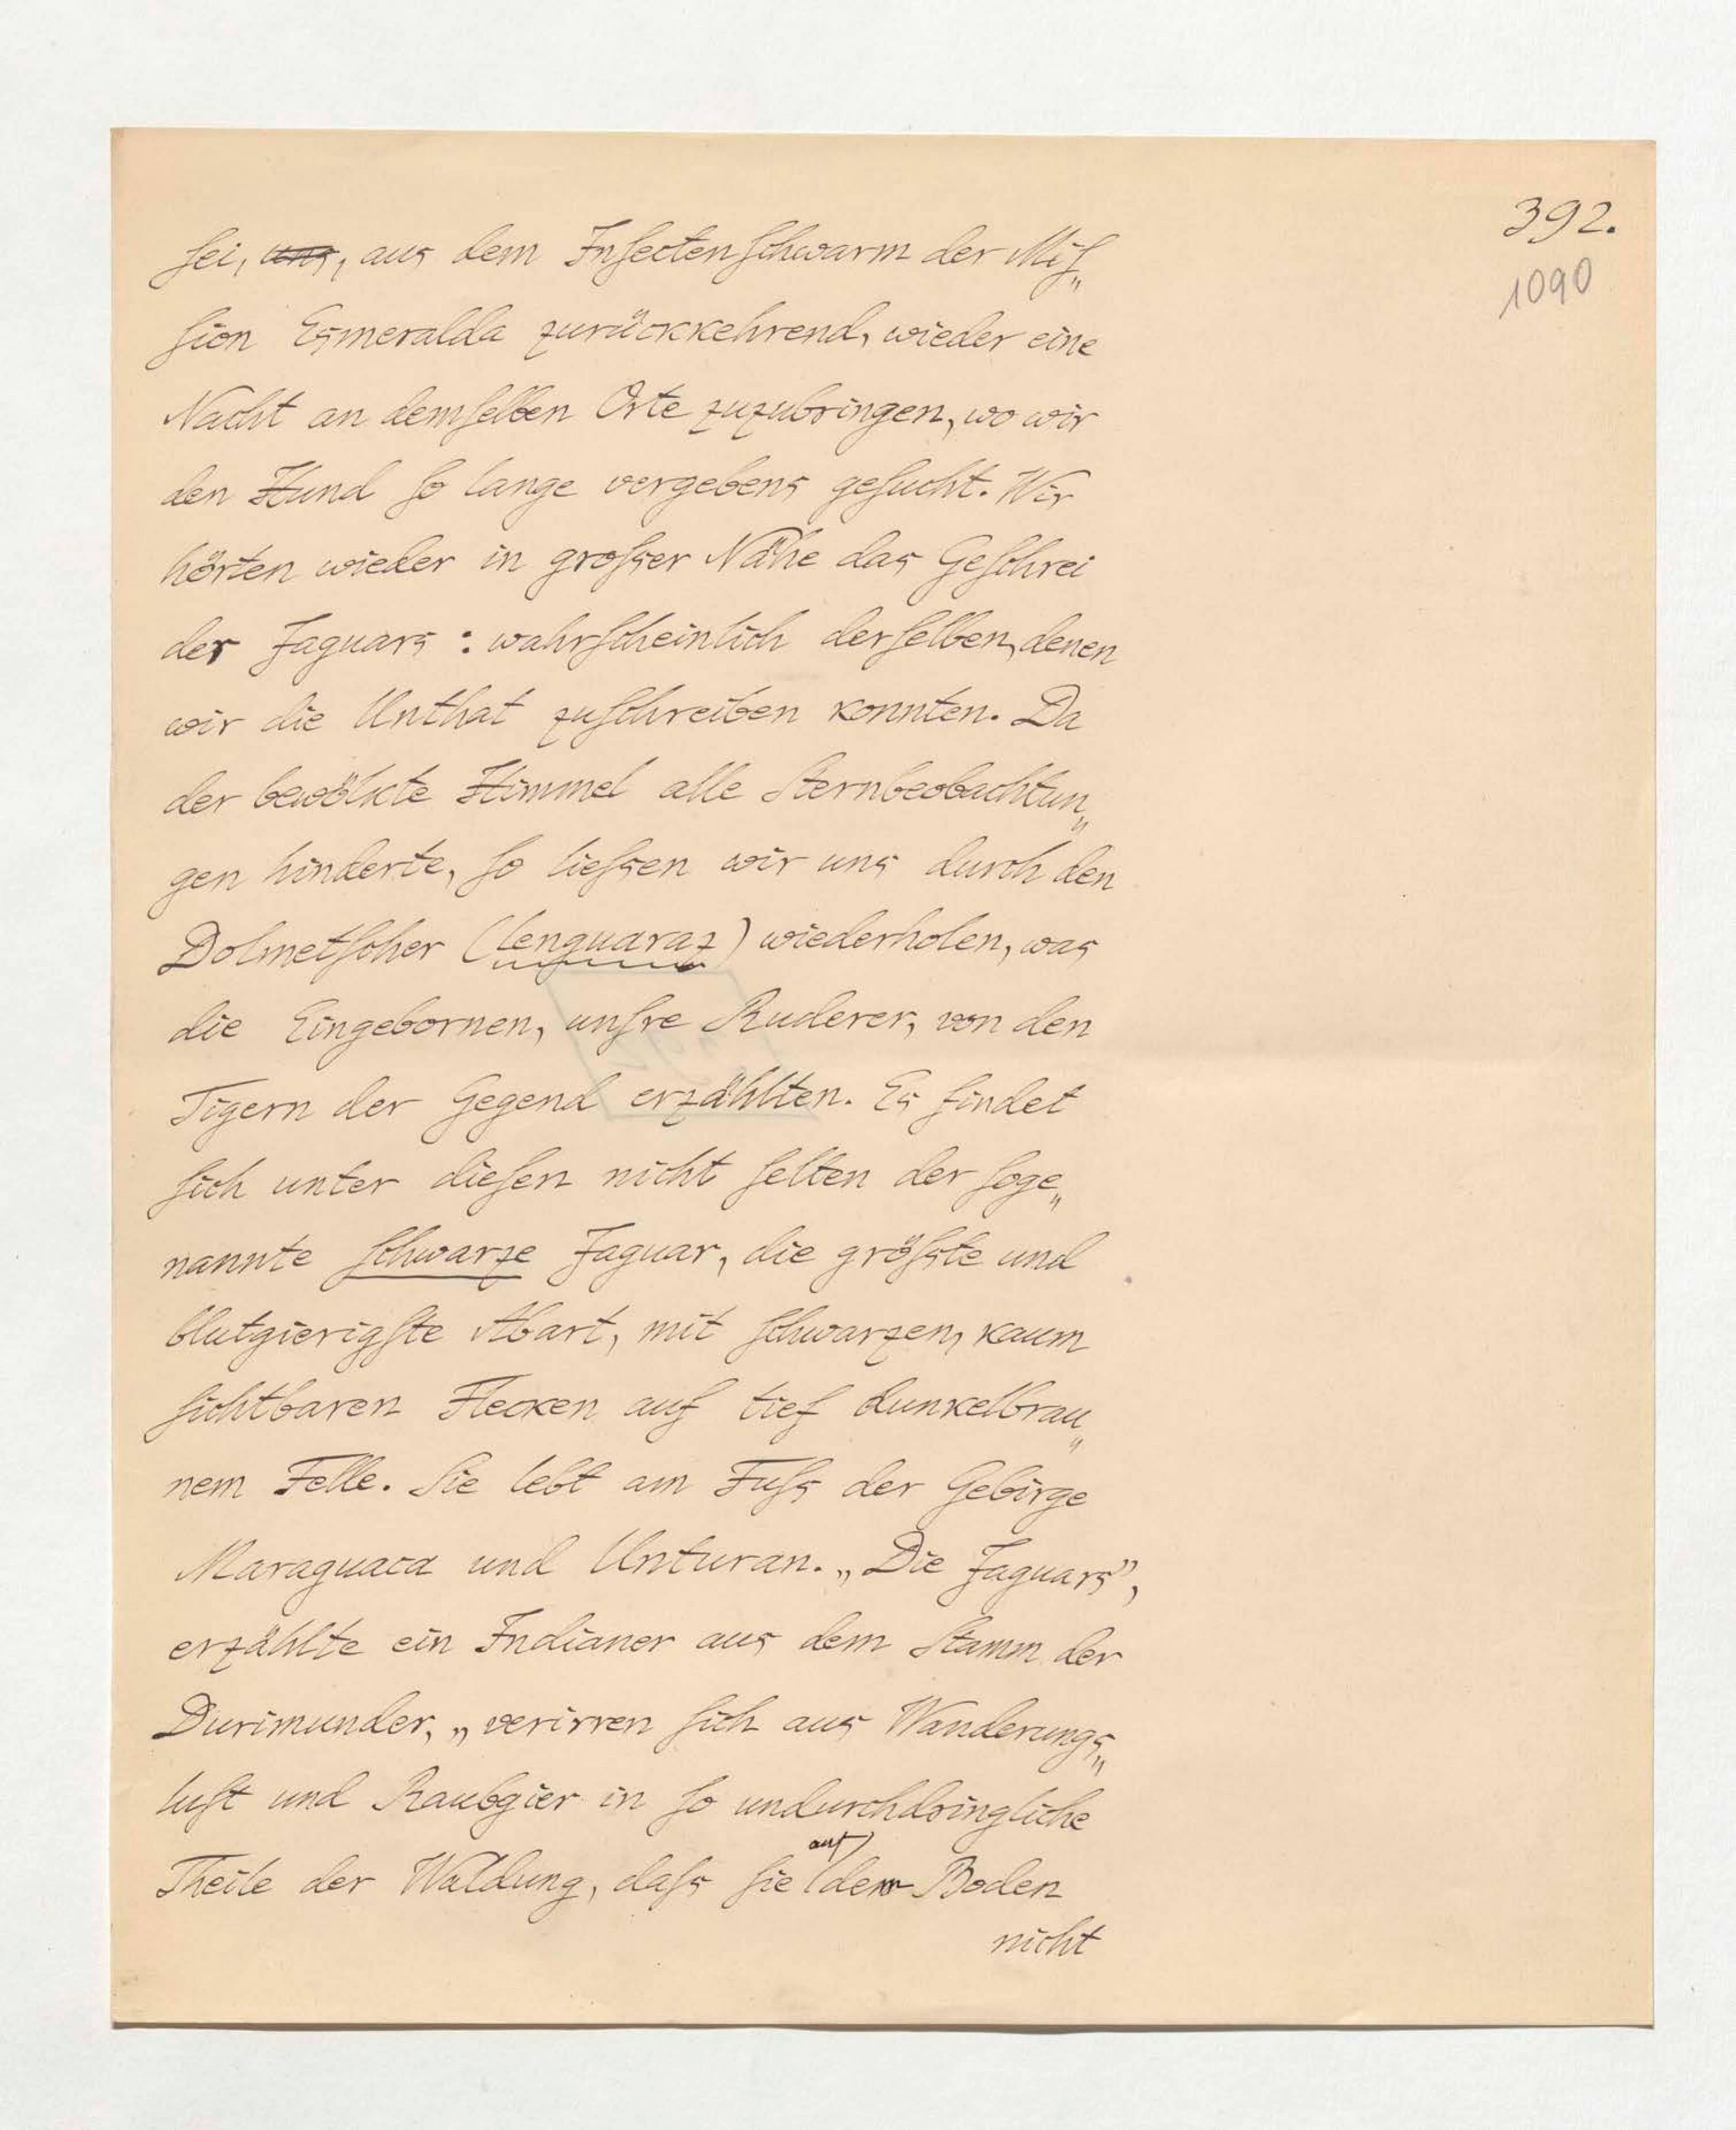 392.
1090
sei, uns, aus dem Insectenschwarm der Mis„
sion Esmeralda zurückkehrend, wieder eine
Nacht an demselben Orte zuzubringen, wo wir
den Hund so lange vergebens gesucht. Wir
hörten wieder in grosser Nähe das Geschrei
der Jaguars : wahrscheinlich derselben, denen
wir die Unthat zuschreiben konnten. Da
der bewölkte Himmel alle Sternbeobachtun„
gen hinderte, so liessen wir uns durch den
Dolmetscher (lenguaraz) wiederholen, was
die Eingebornen, unsre Ruderer, von den
Tigern der Gegend erzählten. Es findet
sich unter diesen nicht selten der soge„
nannte schwarze Jaguar, die grösste und
blutgierigste Abart, mit schwarzen, kaum
sichtbaren Flecken auf tief dunkelbrau„
nem Felle. Sie lebt am Fuss der Gebirge
Maraguaca und Unturan. „Die Jaguars”,
erzählte ein Indianer aus dem Stamm der
Durimunder, „verirren sich aus Wanderungs„
lust und Raubgier in so undurchdringliche
Theile der Waldung, dass sie auf dem Boden
nicht